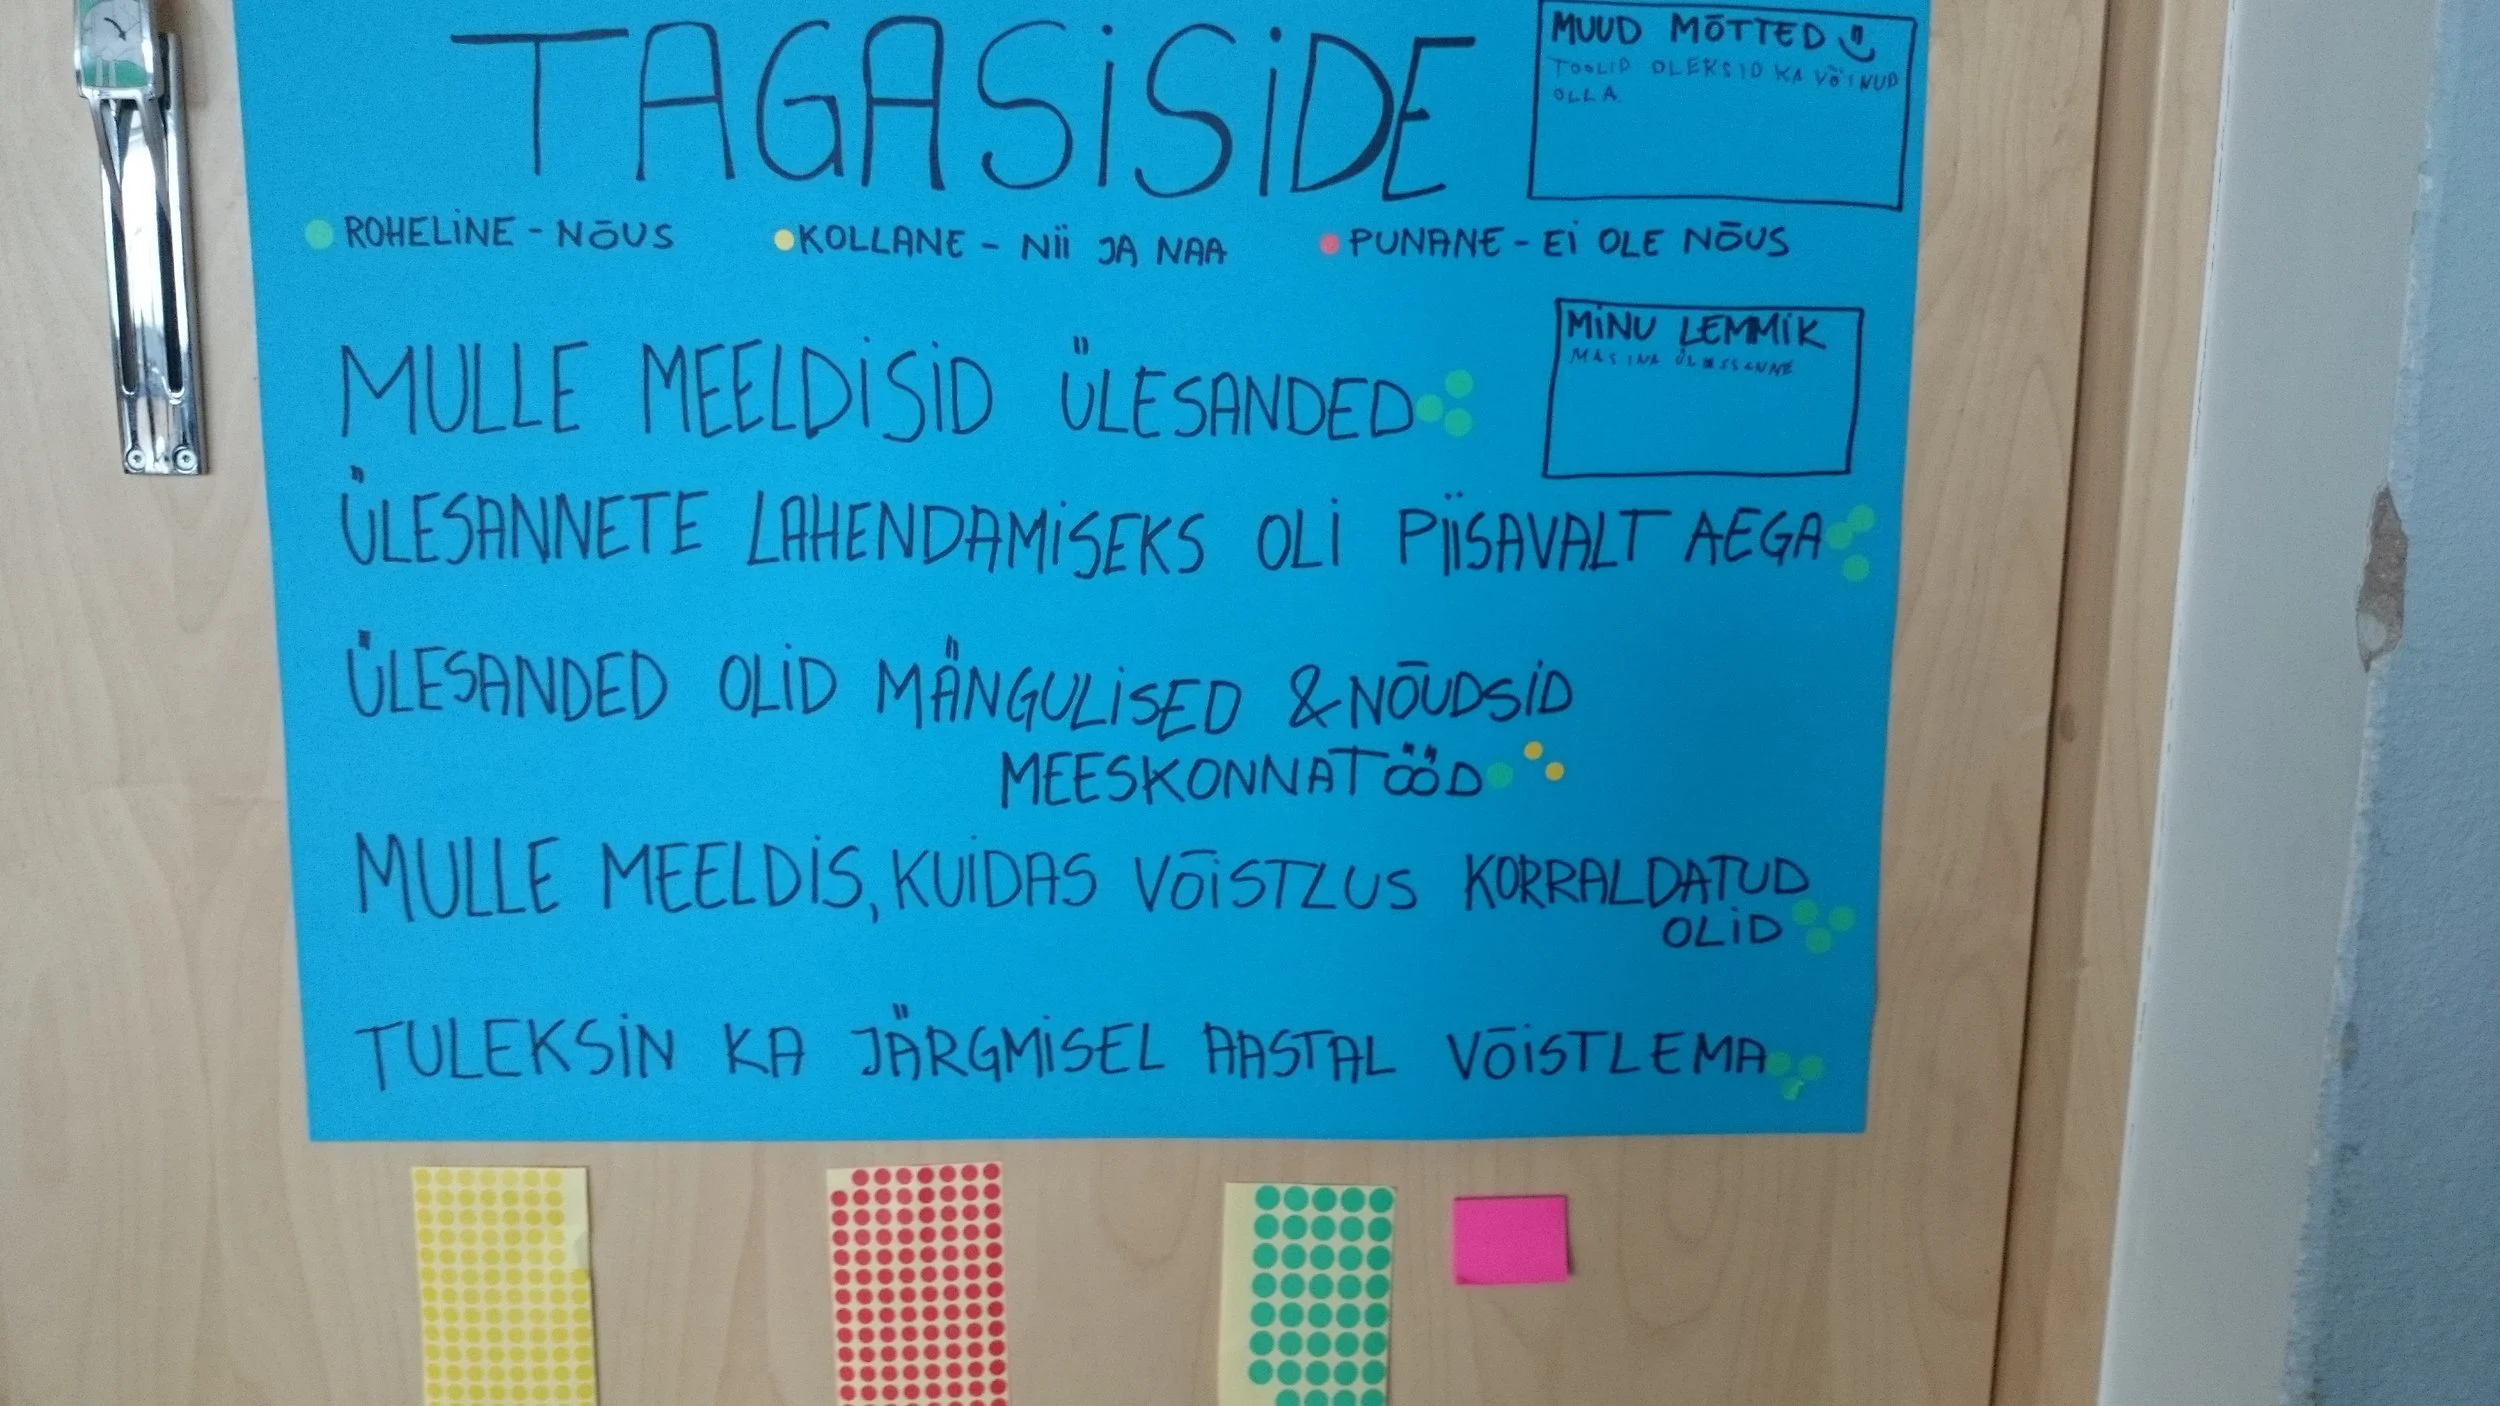 TAGASISIDE
MUUD MÕTTED
TOOLID OLEKSID KA VÕINUD
OLLA
ROHELINE - NÕUS
KOLLANE - NII JA NAA
PUNANE - EI OLE NÕUS
MINU LEMMIK
MASINA ÜLESSANNE
MULLE MEELDISID ÜLESANDED
ÜLESANNETE LAHENDAMISEKS OLI PIISAVALT AEGA
ÜLESANDED OLID MÄNGULISED & NÕUDSID
MEESKONNATÖÖD
MULLE MEELDIS, KUIDAS VÕISTLUS KORRALDATUD
OLID
TULEKSIN KA JÄRGMISEL AASTAL VÕISTLEMA